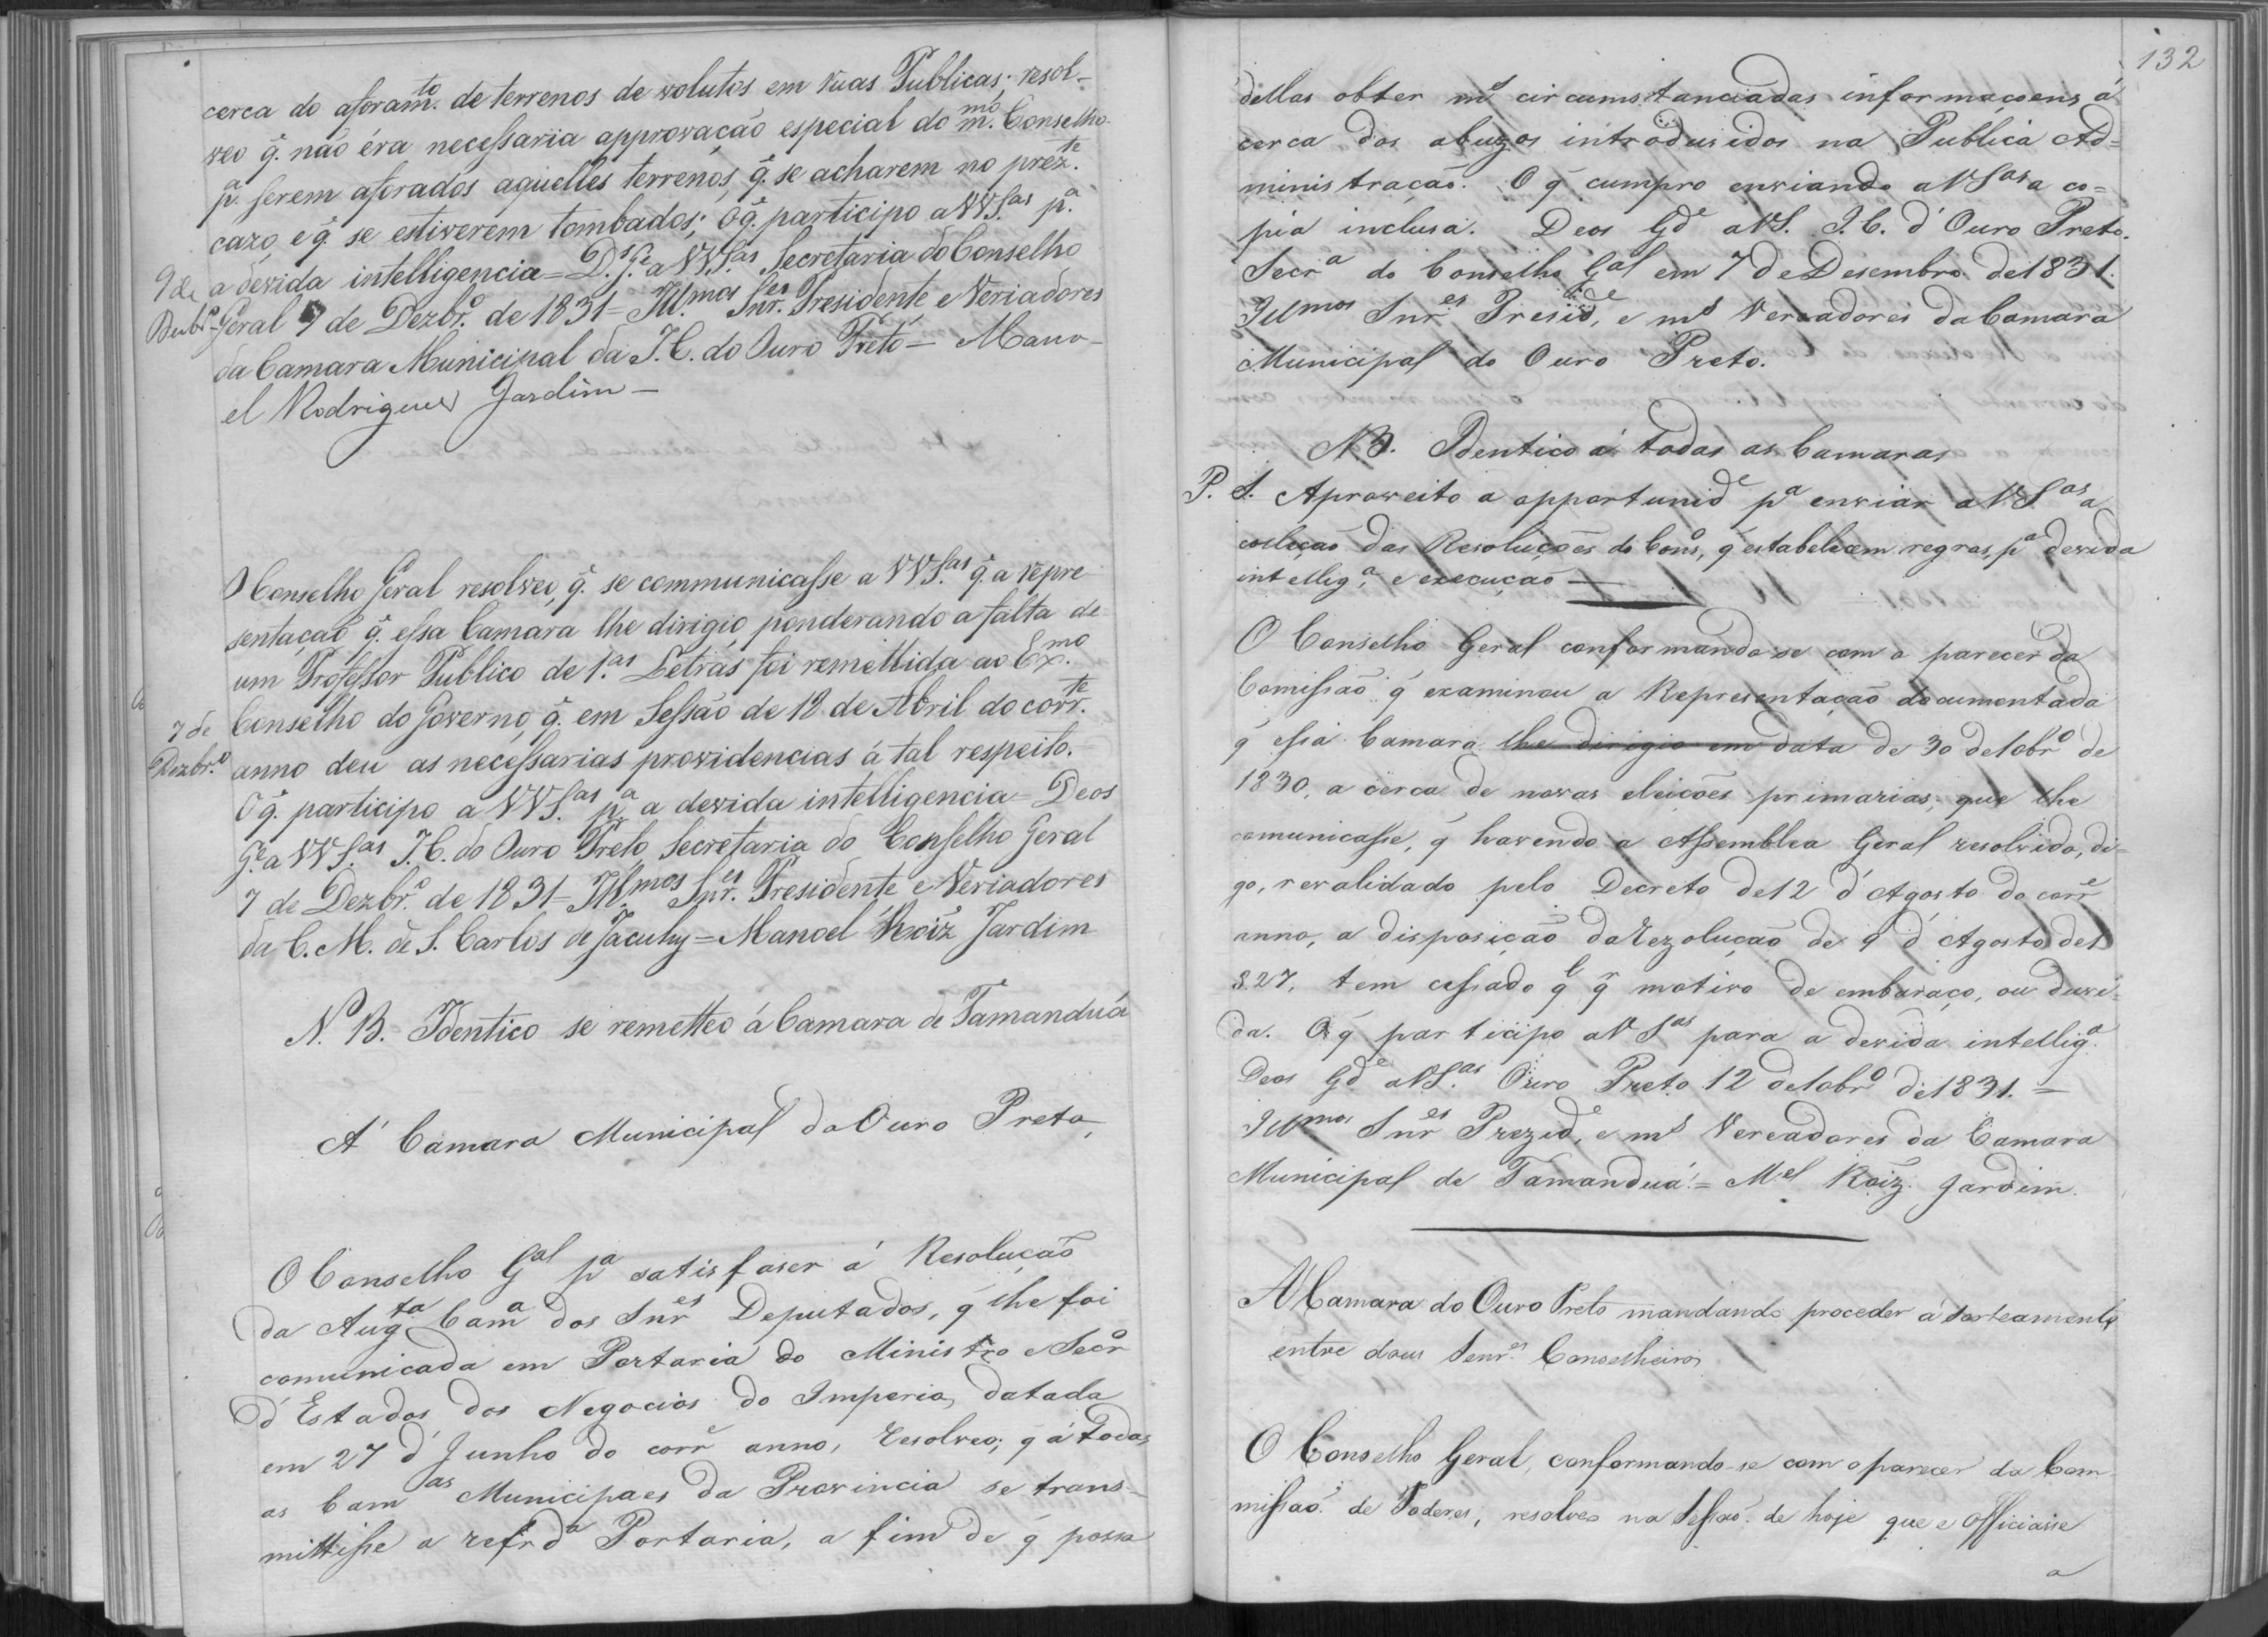 cerca do aforam.to de terrenos de volutos em ruas Publicas; resol-
veo q. não éra necessaria approvação especial do m.mo Conselho
p.a serem aforados aquelles terrenos, q. se acharem no prez.te
cazo, e q. se estiverem tombados; Oq. participo a VVS.as p.a
a devida intelligencia = D.s G.e a VVS.as Secretaria do Conselho
9 de
Geral 9 de Dezbr.o de 1831 = Ill.mos Snr.es Presidente e Veriadores
da Camara Municipal da I.C. do Ouro Preto = Mano-
el Rodrigues Jardim —
O Conselho Geral resolveo, q. se communicasse a VVS.as q. a repre
sentação q. essa Camara lhe dirigio ponderando a falta de
um Professor Publico de 1.as Letras foi remettida ao Ex.mo
7 de
Conselho do Governo, q. em Sessão de 18 de Abril do corr.te
Dezbr.o
anno deu as necessarias providencias á tal respeito.
Oq. participo a VVS.as p.a a devida intelligencia = Deos
G.e a VVS.as I.C. do Ouro Preto Secretaria do Conselho Geral
7 de Dezbr.o de 1831 = Ill.mos Snr.es Presidente e Veriadores
da C. M. de S. Carlos de Jacuhy = Manoel Roiz Jardim
N. B. Identico se remetteo á Camara de Tamanduá
A' Camara Municipal do Ouro Preto
O Conselho G.al p.a satisfaser á Resolução
da Aug.ta Cam.a dos Snr.es Deputados, q lhe foi
comunicada em Portaria do Ministro e Secr.o
d'Estados dos Negocios do Imperio, datada
em 27 d'Junho do corr.e anno, resolveo; q á todas
as Cam.as Municipaes da Provincia se trans-
mittisse a refrd.a Portaria, a fim de q possa
132
dellas obter m.s circumstanciadas informaçoens á
cerca dos abuzos introdusidos na Publica Ad=
ministração. O q cumpro enviando a VS.as a co=
pia inclusa. Deos Gd.e a VS. I.C. d'Ouro Preto.
Secr.a do Conselho G.al em 7 de Desembro de 1831.
Ill.mos Snr.es Presid.e, e m.s Vereadores da Camara
Municipal do Ouro Preto.
N B. Identico á todas as Camaras
P. S. Aproveito a opportunid.e p.a enviar a VS.as a
colleção das Resoluções do Cons.o, q estabelecem regras, p.a devida
intellig.a e execução —
O Conselho Geral conformando-se com o parecer da
Comissão q examinou a Representação documentada
q essa Camara lhe dirigio em data de 30 de 10br.o de
1830, a cerca de novas eleições primarias, que lhe
comunicasse, q havendo a Assemblea Geral resolvido, di-
go, revalidado pelo Decreto de 12 d'Agosto do corr.e
anno, a disposição da rezolução de 9 d'Agosto de 1
827, tem cessado q.l q.r motivo de embaraço, ou duvi-
da. O q participo a VS.as para a devida intellig.a
Deos Gd.e a VS.as Ouro Preto 12 de 10br.o de 1831. =
Ill.mos Snr.es Prezid.e, e m.s Vereadores da Camara
Municipal de Tamanduá = M.el Roiz Jardim.
A Camara do Ouro Preto mandando proceder á sorteamento
entre dous Senr.es Conselheiros
O Conselho Geral, conformando-se com o parecer da Com
missão de Poderes, resolveo na Sessão de hoje que e officiasse
a